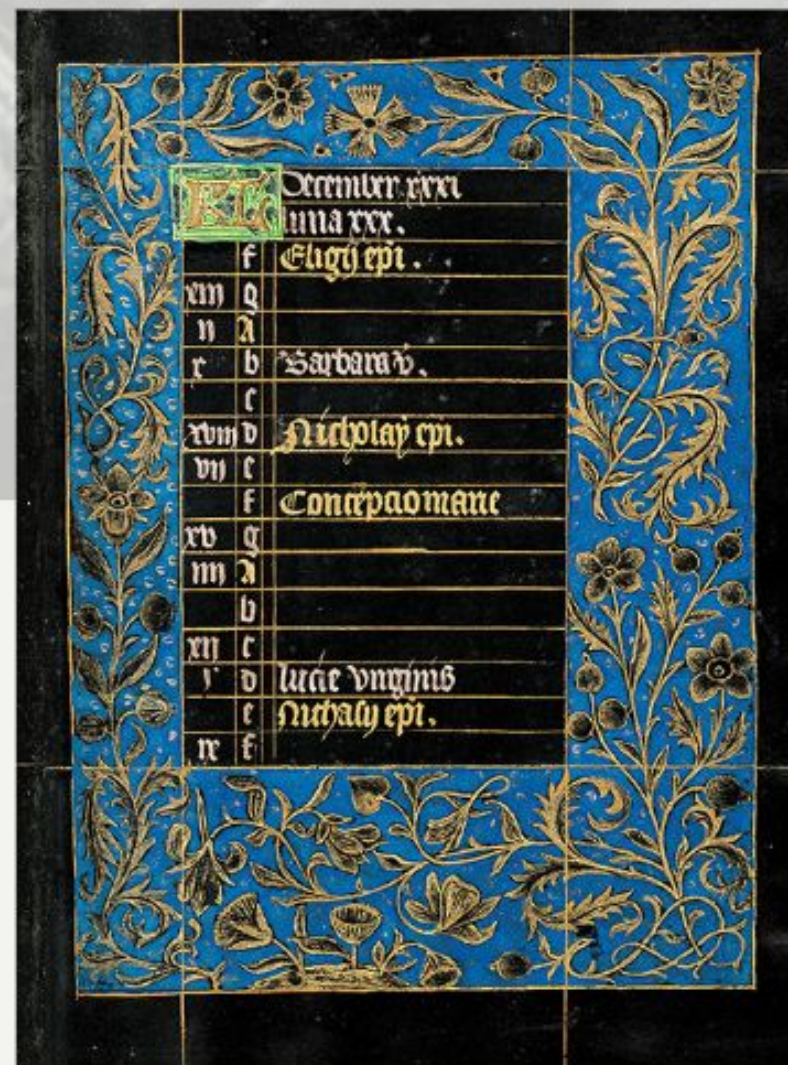 KL December xxxi
luna xxx.
f Eligij epi.
xiii g
ii A
x b Barbara v.
c
xviii d Nicholay epi.
vii e
f Concepcio marie
xv g
iiii A
b
xii c
i d lucie virginis
e Nichasy epi.
ix f